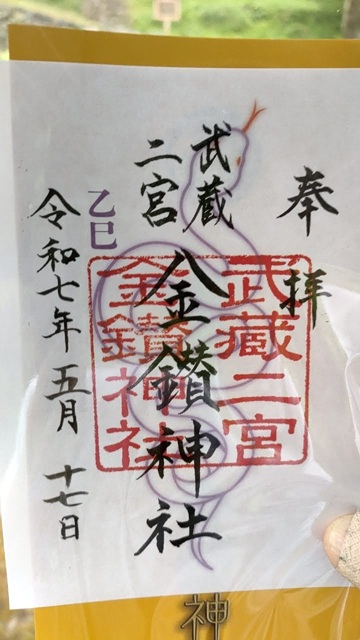 奉拝
武蔵
二宮
金鑚神社
武蔵二宮
金鑚神社
乙巳
令和七年五月十七日
神